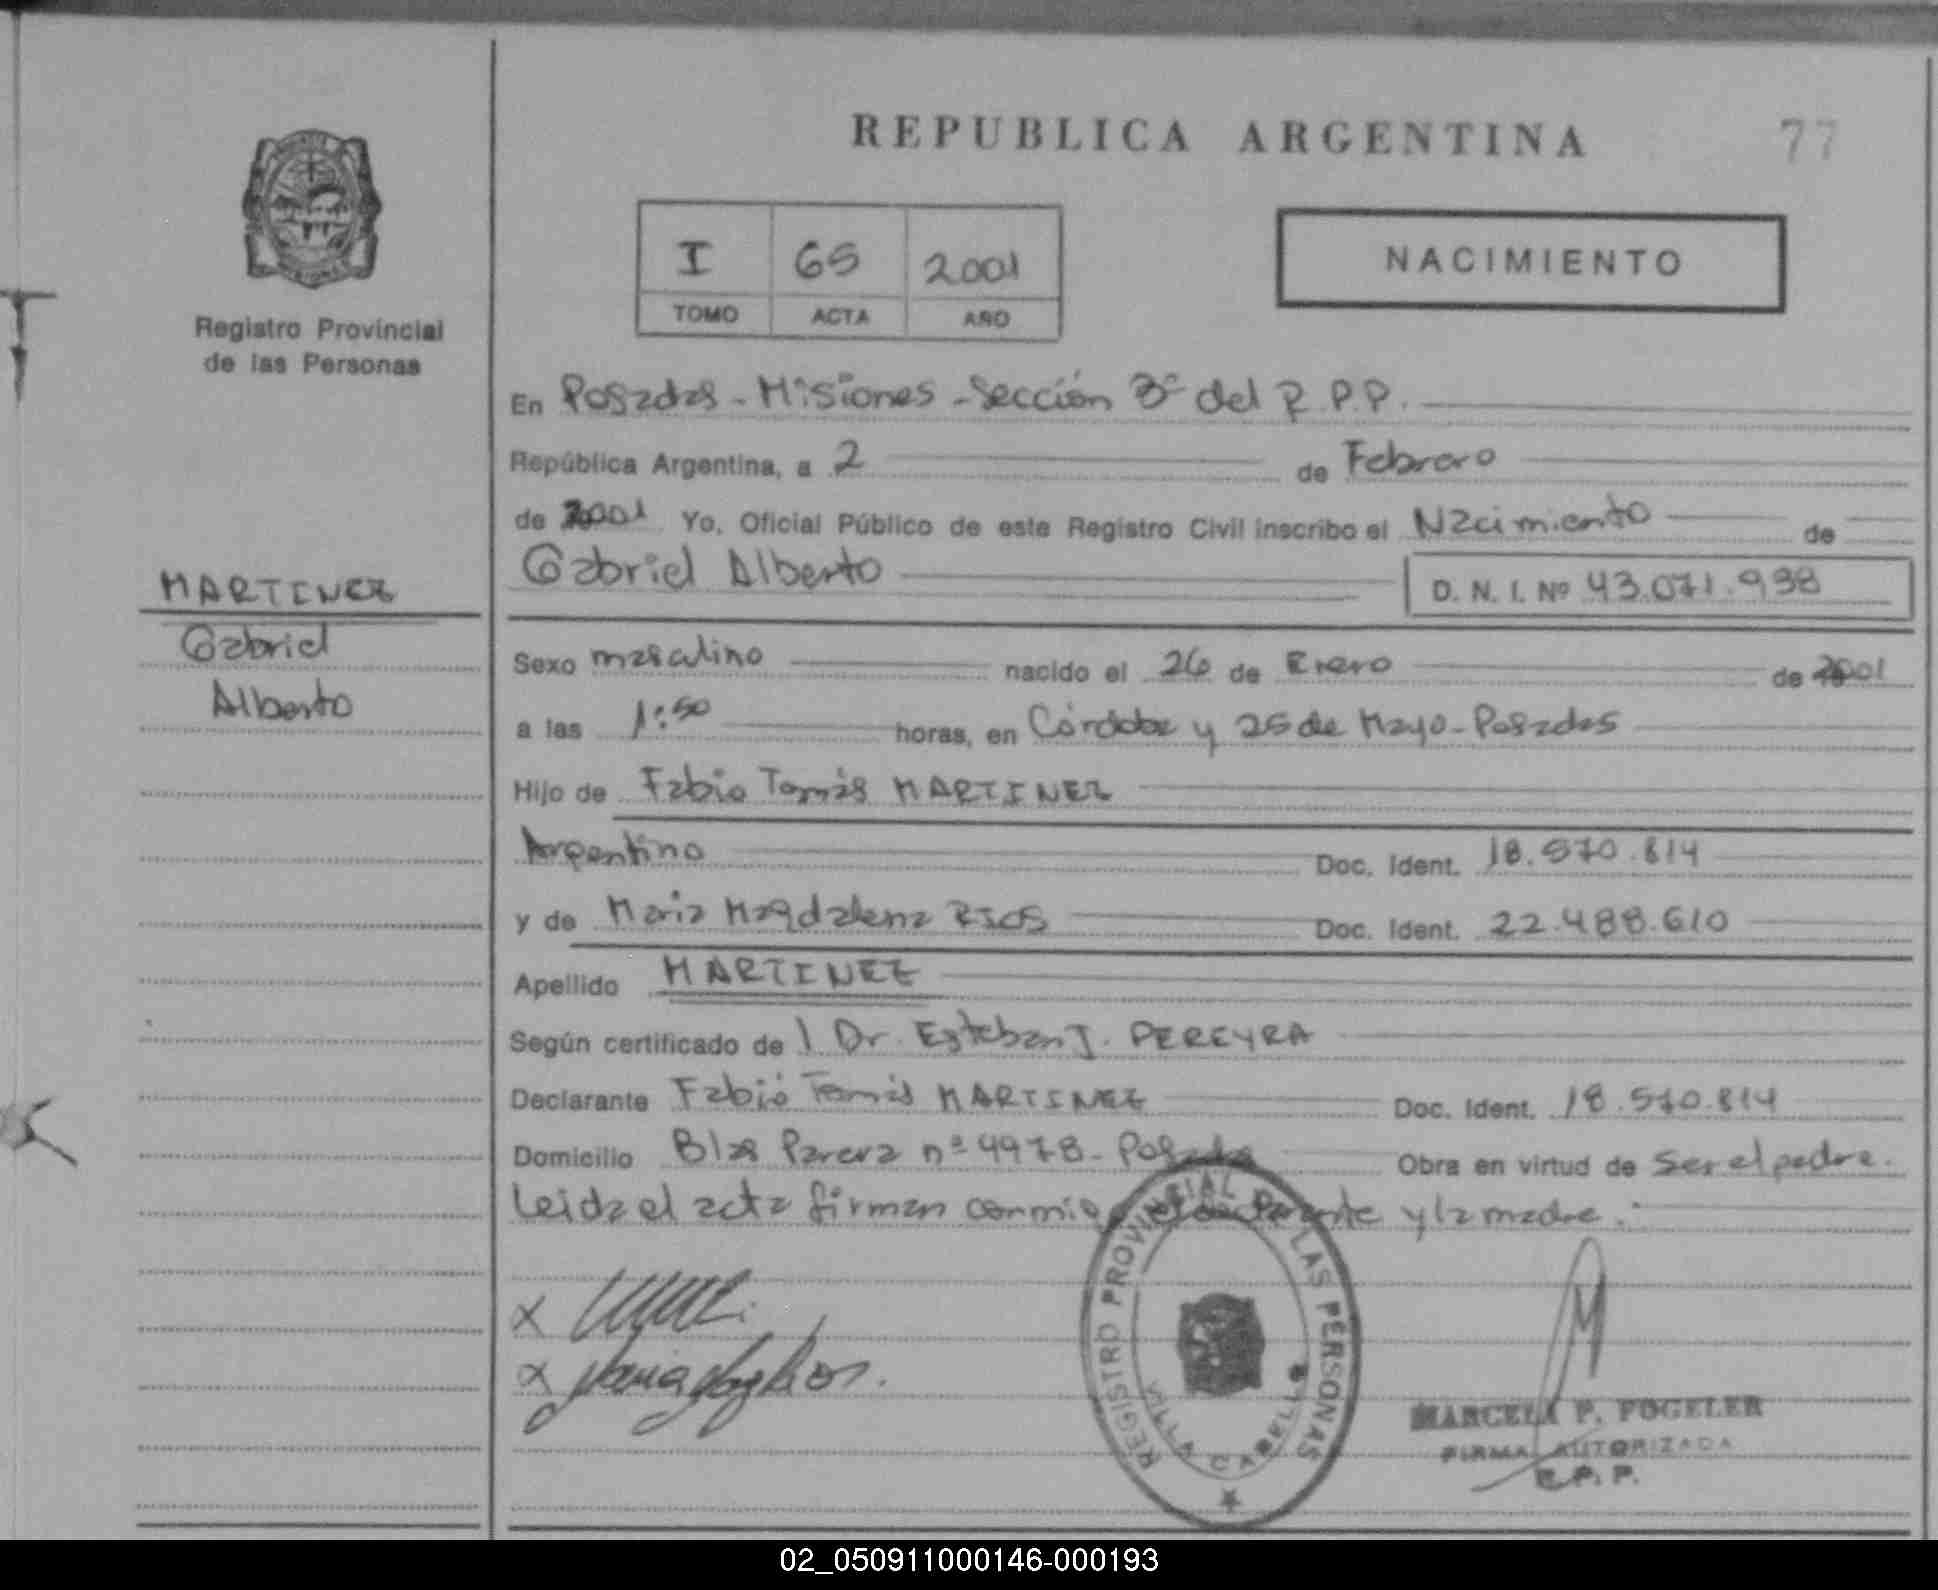 REPUBLICA ARGENTINA
77
I 65 2001
TOMO ACTA AÑO
NACIMIENTO
Registro Provincial
de las Personas
En Posadas - Misiones - Sección 3ª del R.P.P.
República Argentina, a 2 de Febrero
de 2001 Yo, Oficial Público de este Registro Civil inscribo el Nacimiento de
Gabriel Alberto
D. N. I. Nº 43.071.938
MARTINEZ
Gabriel
Alberto
Sexo masculino nacido el 26 de Enero de 2001
a las 1:50 horas, en Córdoba y 25 de Mayo - Posadas
Hijo de Fabio Tomás MARTINEZ
Argentino Doc. Ident. 18.570.814
y de Maria Magdalena RIOS Doc. Ident. 22.488.610
Apellido MARTINEZ
Según certificado de l Dr. Esteban J. PEREYRA
Declarante Fabio Tomás MARTINEZ Doc. Ident. 18.570.814
Domicilio Blas Parera nº 4978 - Posadas Obra en virtud de ser el padre.
Leida el acta firman conmigo el declarante y la madre.
REGISTRO PROVINCIAL DE LAS PERSONAS
VILLA CABELLO
MARCELA P. FOGELER
FIRMA AUTORIZADA
R.P.P.
02_050911000146-000193